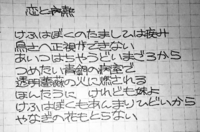 恋と病熱
けふはぼくのたましひは疾み
烏さへ正視ができない
あいつはちやうどいまごろから
つめたい青銅の病室で
透明薔薇の火に燃される
ほんたうに けれども妹よ
けふはぼくもあんまりひどいから
やなぎの花もとらない